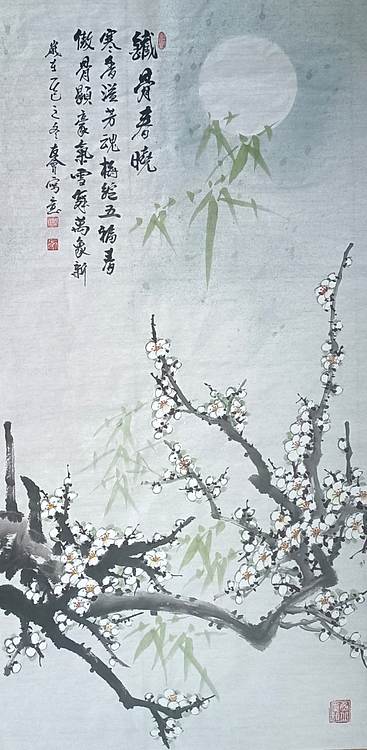 鐵骨春曉
寒香溢芳魂梅綻五福春
傲骨顯豪氣雪舞萬象新
歲在乙巳之冬 寫意